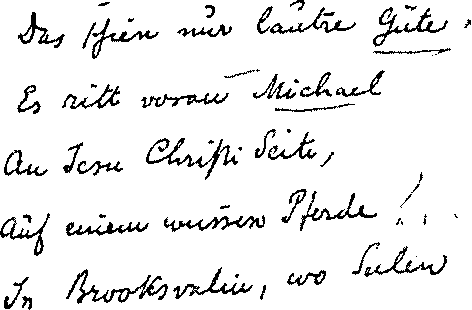 Das schien nur lautre Güte,
Es ritt voran Michael
An Jesu Christi Seite,
Auf einem weissen Pferde!..
In Brooksvalin, wo Seelen